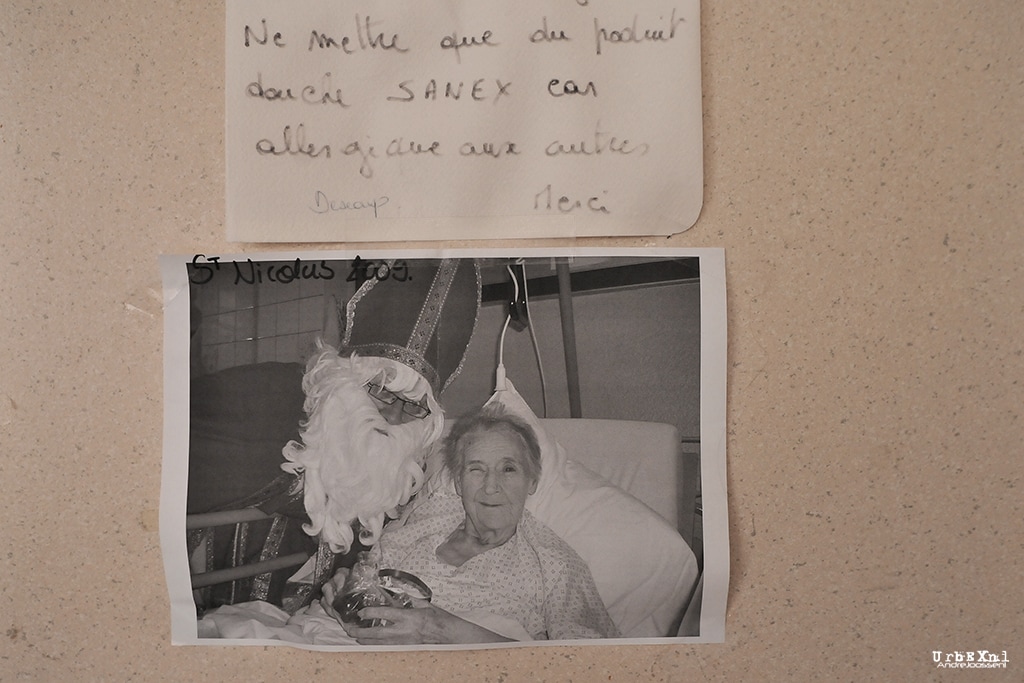 Ne mettre que du produit
douche SANEX car
allergique aux autres
Merci
St Nicolas 2009.
UrbEXnl
AndreJoosse.nl